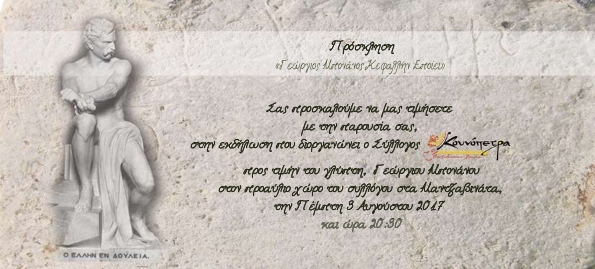 Πρόσκληση
«Γεώργιος Μπονάνος Κεφαλλήν Εποίει»
Σας προσκαλούμε να μας τιμήσετε
με την παρουσία σας,
στην εκδήλωση που διοργανώνει ο Σύλλογος Κουνόπετρα
προς τιμήν του γλύπτη, Γεώργιου Μπονάνου
στον προαύλιο χώρο του συλλόγου στα Μαντζαβινάτα,
την Πέμπτη 3 Αυγούστου 2017
και ώρα 20:30
Ο ΕΛΛΗΝ ΕΝ ΔΟΥΛΕΙΑ.